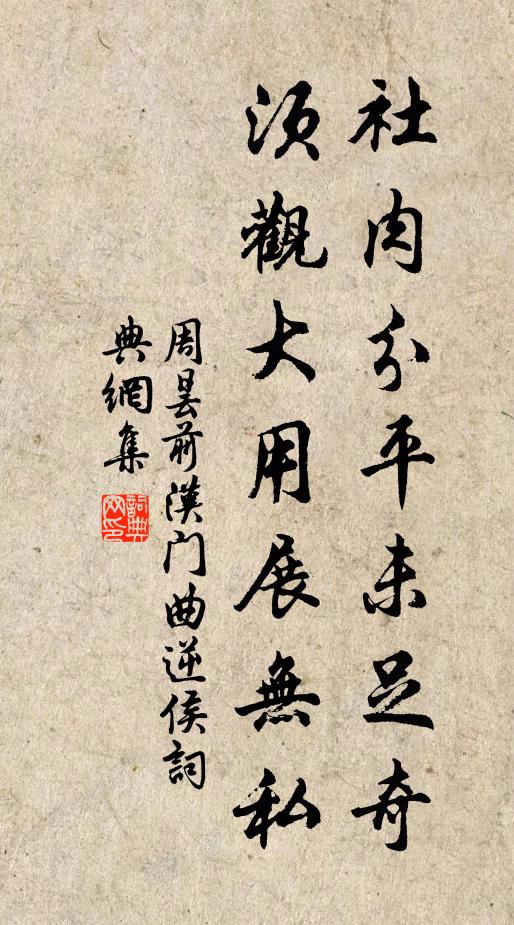 社肉分平未足奇
須觀大用展無私
周曇前漢門曲逆侯詞
典網集
詞典网印